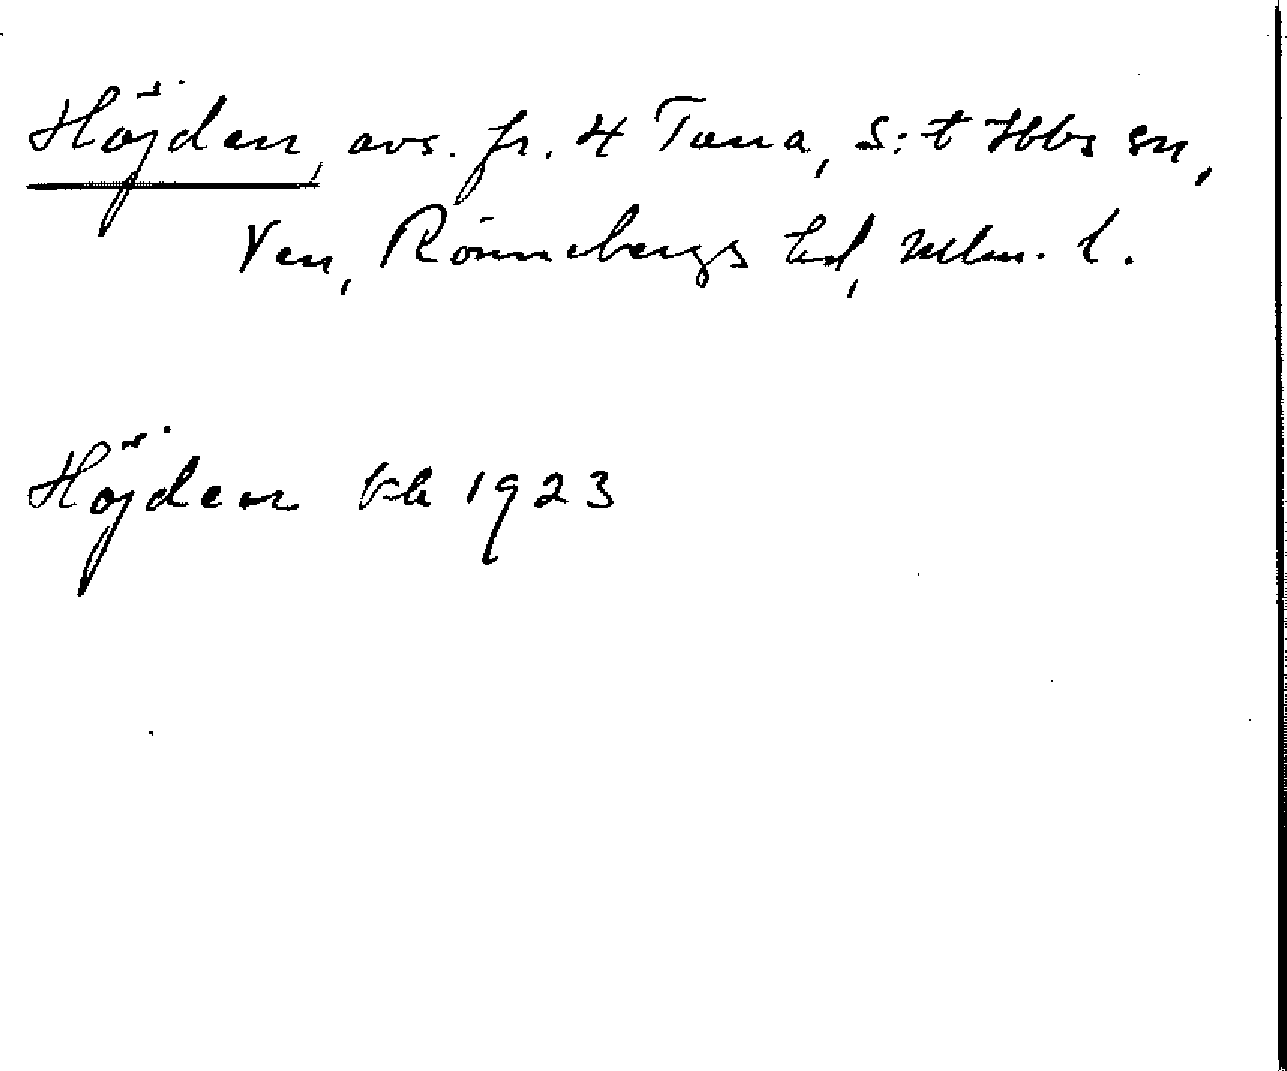 Höjden, avs. fr. 4 Tuna, S:t Ibbs sn,
Ven, Rönnebergs hd, Mlm. l.
Höjden 1923